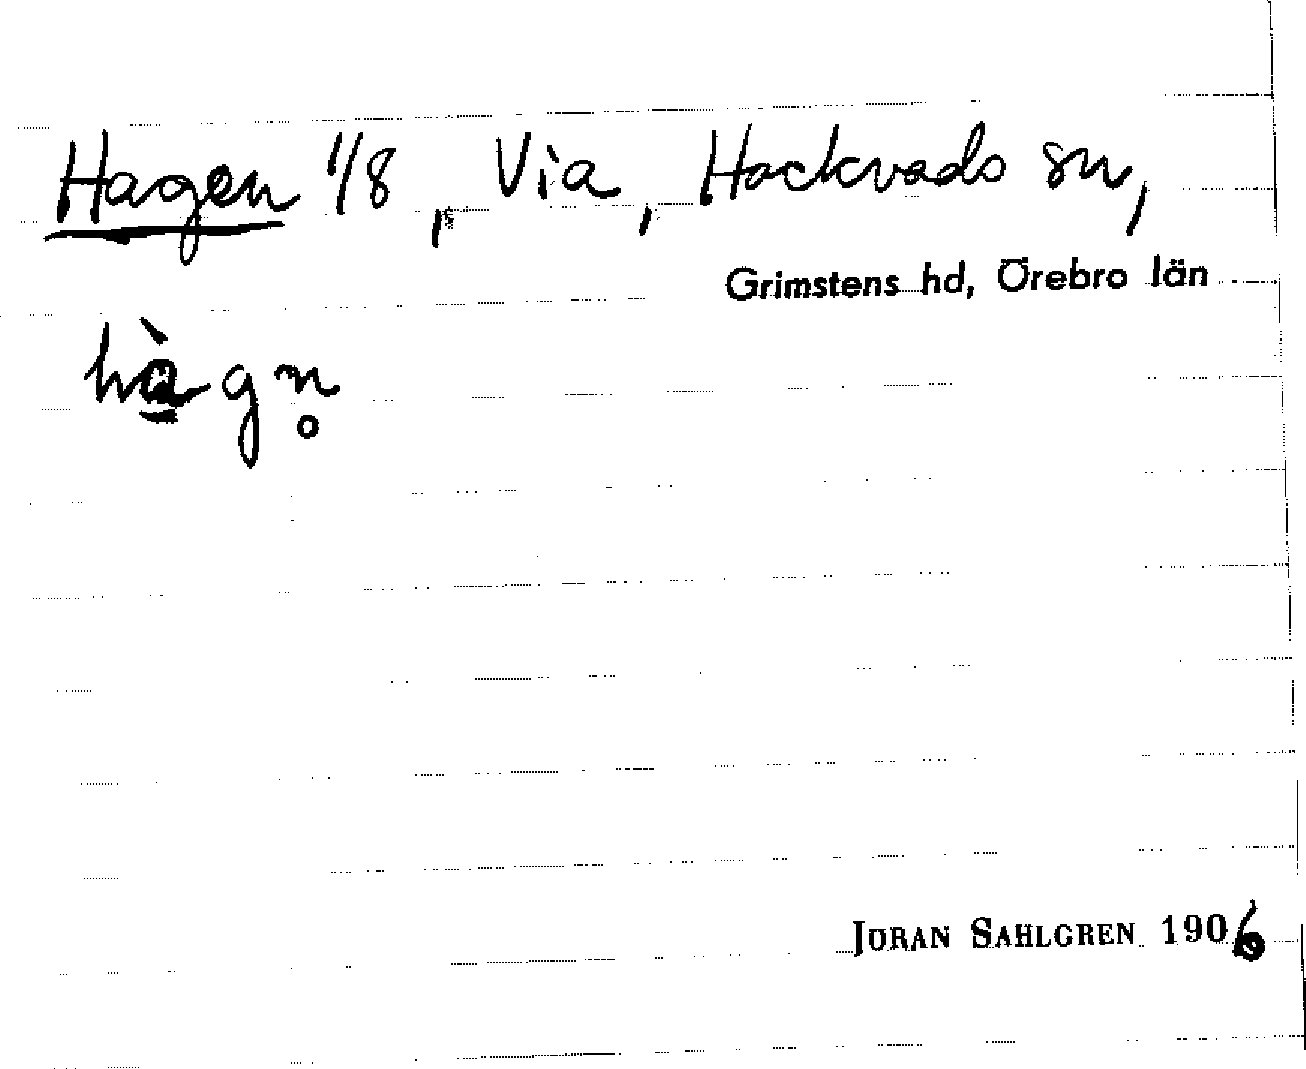 Hagen 1/8, Via, Hackvads sn,
Grimstens hd, Örebro län
hàgn̥
JÖRAN SAHLGREN 1906